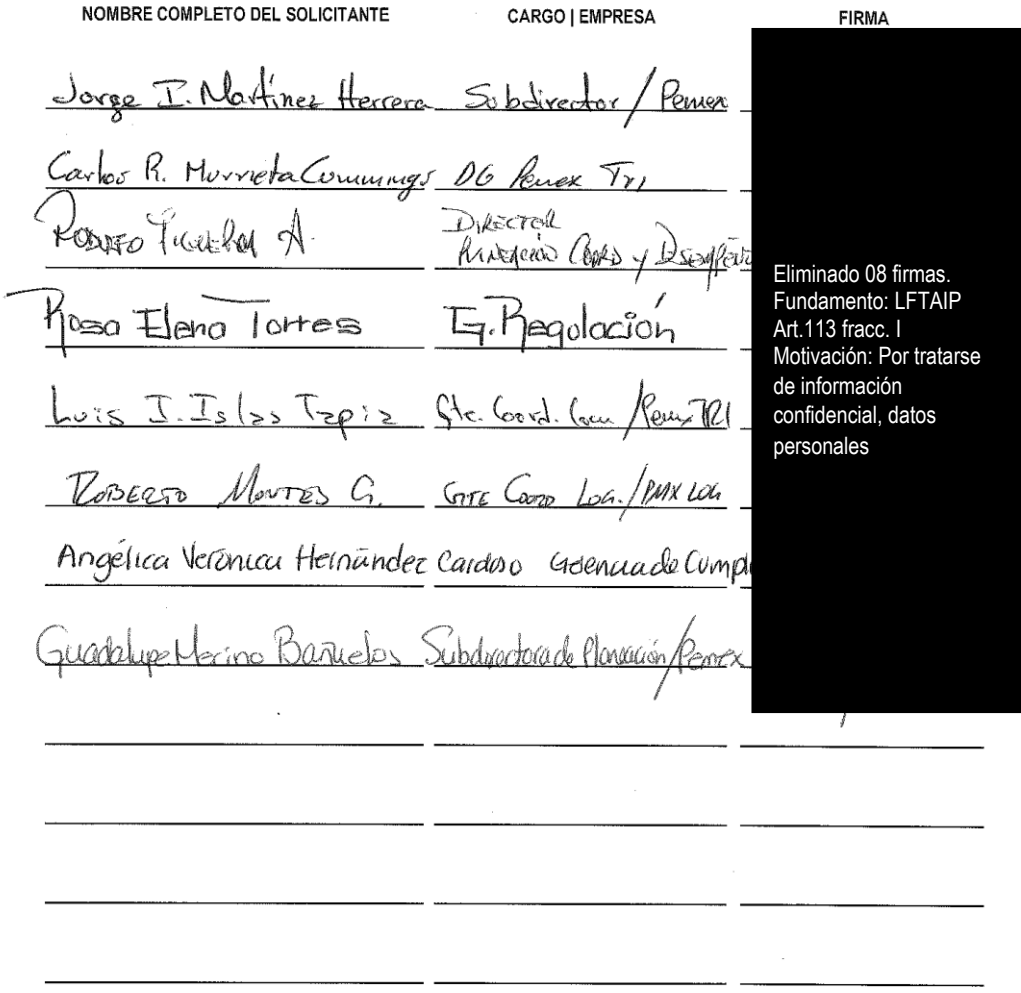 NOMBRE COMPLETO DEL SOLICITANTE CARGO | EMPRESA FIRMA
Jorge I. Martínez Herrera Subdirector / Pemex
Carlos R. Murrieta Cummings DG Pemex Tri
Rodulfo Figueroa A. DIRECTOR
Planeación Coord y Desempeño
Rosa Elena Torres G. Regulación
Luis I. Islas Tapia Gte. Coord. Com / Pemex TRI
ROBERTO MONTES G. GTE COORD LOG. / PMX LOG
Angélica Verónica Hernández Cardoso Gerencia de Cumpl
Guadalupe Merino Bañuelos Subdirectora de Planeación / Pemex
Eliminado 08 firmas.
Fundamento: LFTAIP
Art.113 fracc. I
Motivación: Por tratarse
de información
confidencial, datos
personales